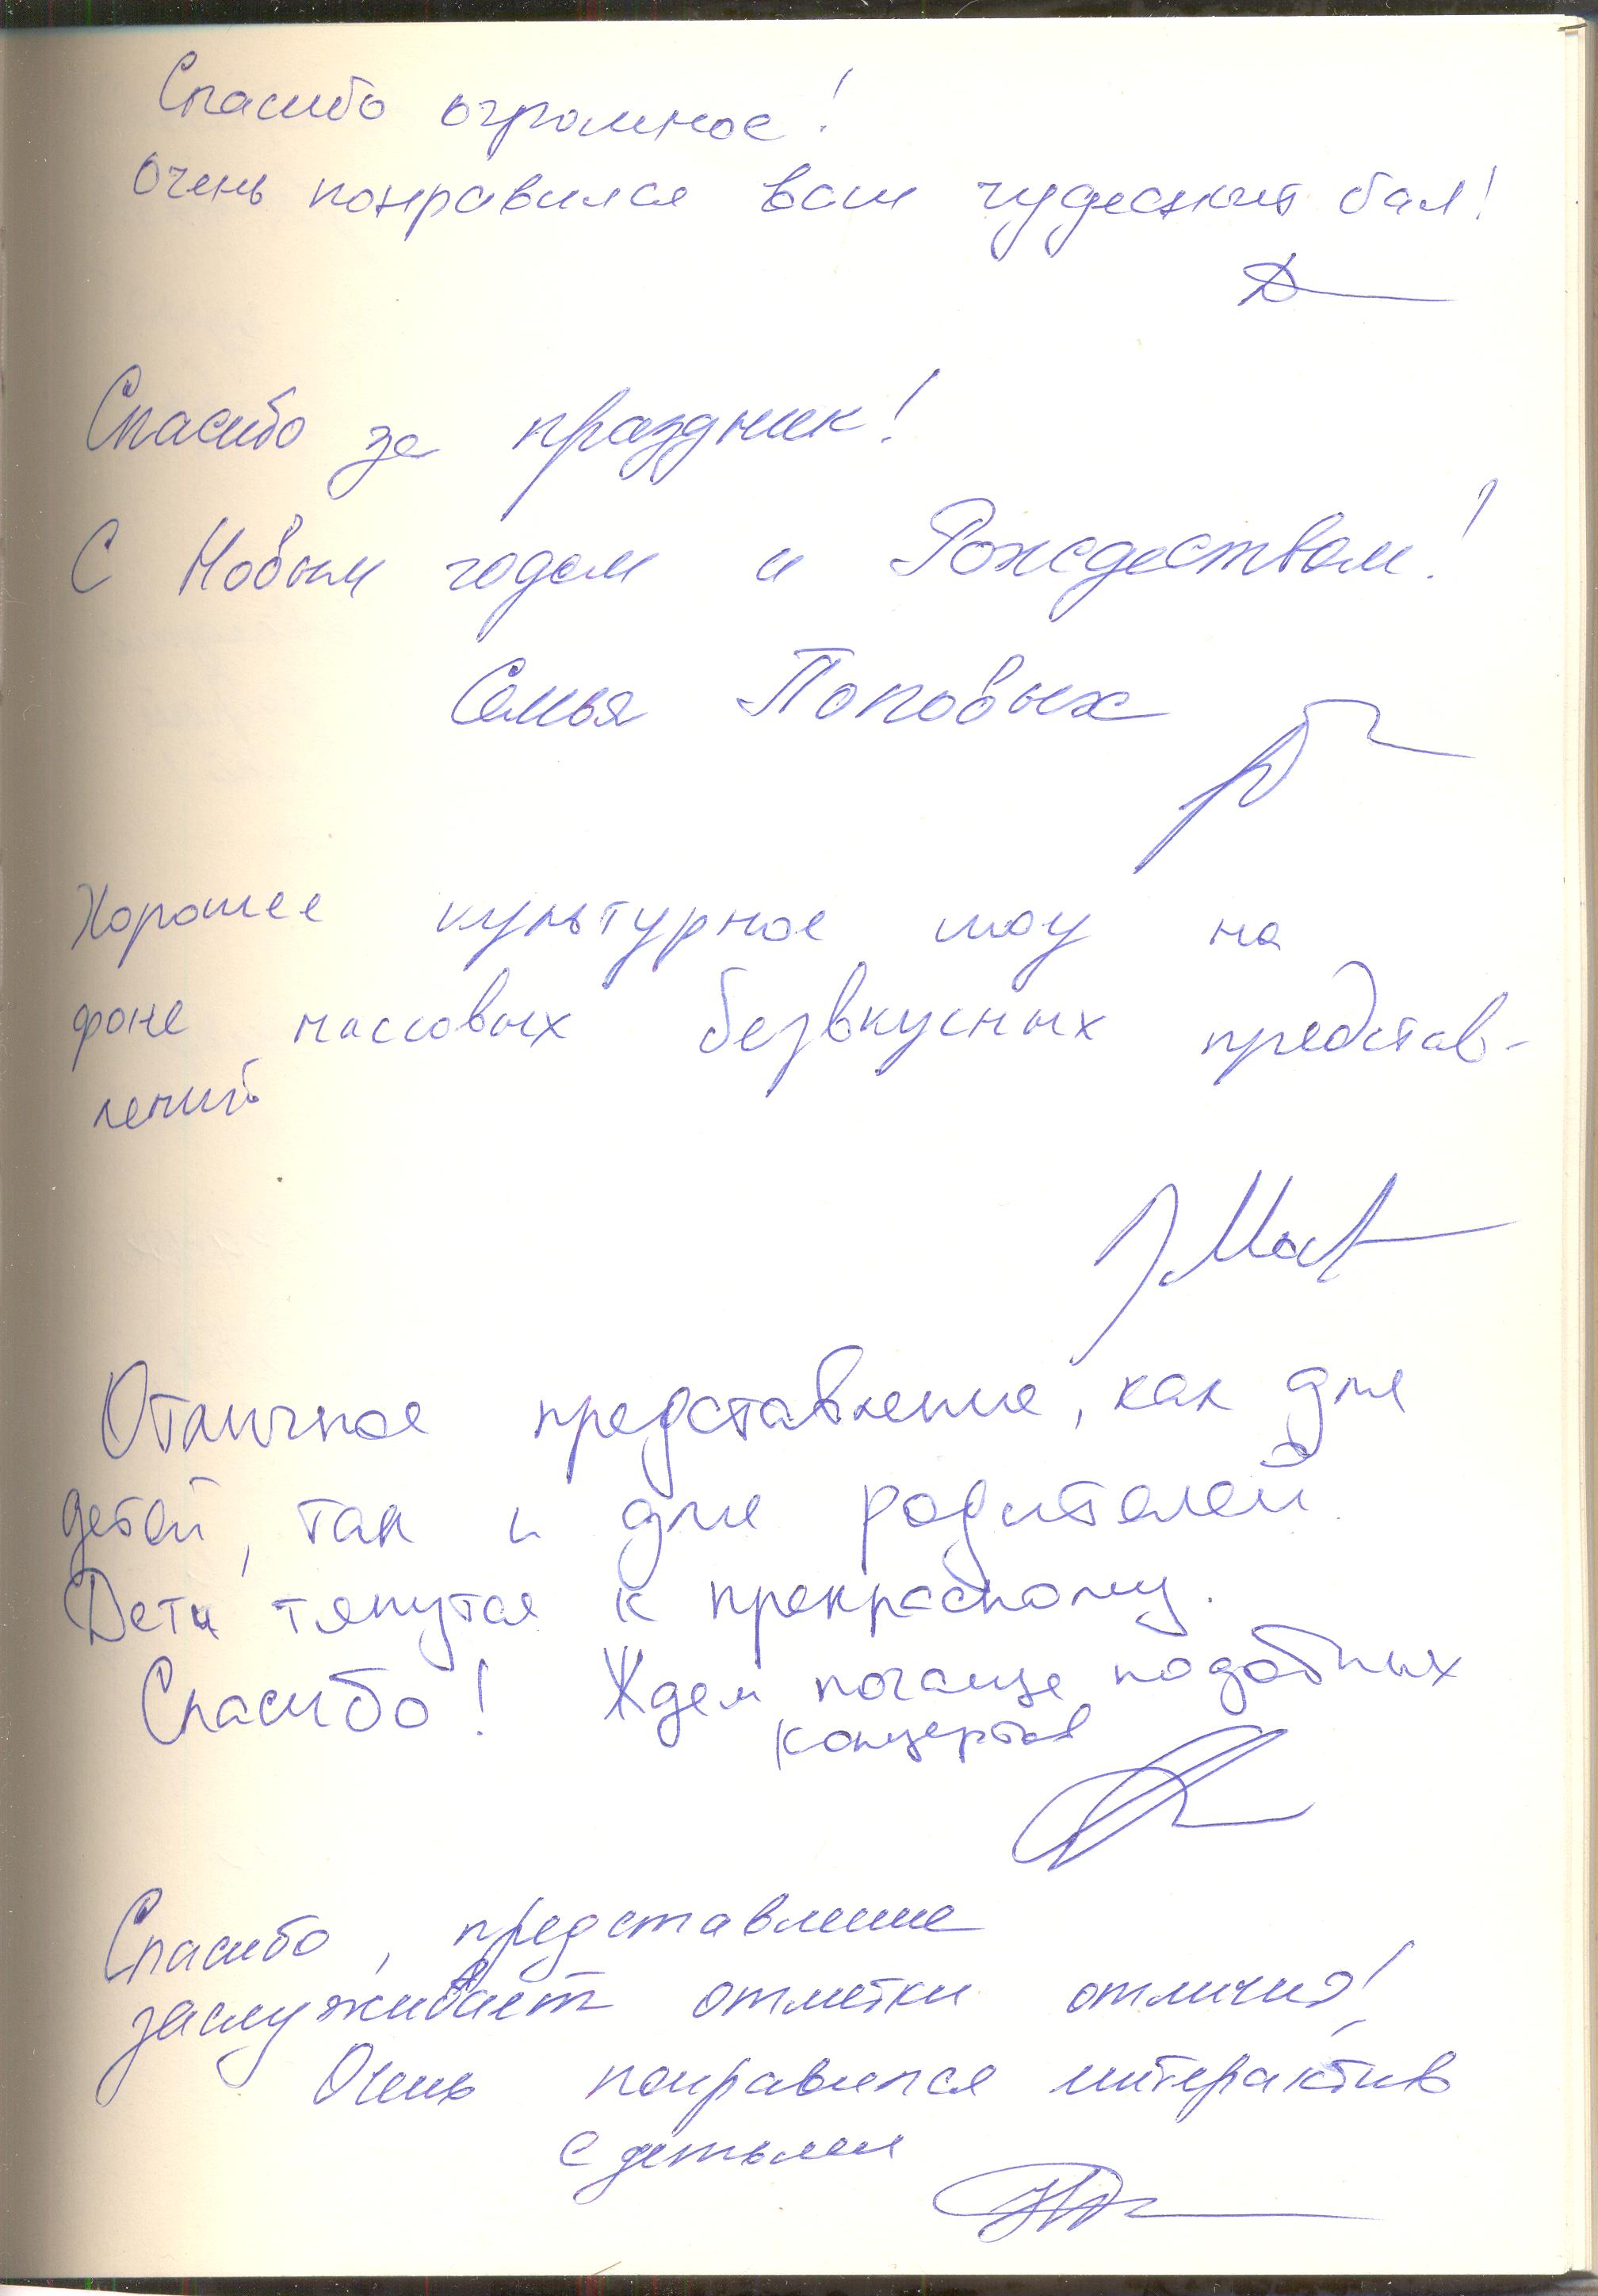 Спасибо огромное!
Очень понравился ваш чудесный бал!
Спасибо за праздник!
С Новым годом и Рождеством!
Семья Поповых
Хорошее культурное шоу на
фоне массовых безвкусных представ-
лений
Отличное представление, как для
детей, так и для родителей.
Дети тянутся к прекрасному.
Спасибо! Ждем почаще подобных
концертов
Спасибо, представление
заслуживает отметки отлично!
Очень понравился интерактив
с детьми